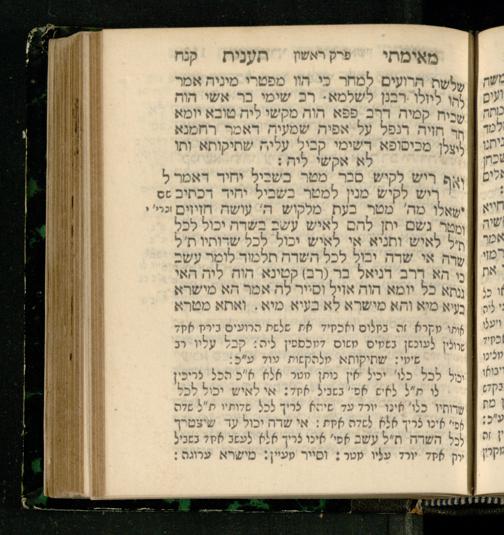 מאימתי פרק ראשון תענית קנח
שלשת הרועים למחר כי הוו מפטרי מיניה אמר
להו ליזלו רבנן לשלמא. רב שימי בר אשי הוה
שכיח קמיה דרב פפא הוה מקשי ליה טובא יומא
חד חזייה דנפל על אפיה שמעיה דאמר רחמנא
ליצלן מכיסופא דשימי קביל עליה שתיקותא ותו
לא אקשי ליה:
ואף ריש לקיש סבר מטר בשביל יחיד דאמר ל
ריש לקיש מנין למטר בשביל יחיד דכתיב
שאלו מה' מטר בעת מלקוש ה' עושה חזיזים
ומטר גשם יתן להם לאיש עשב בשדה יכול לכל
ת"ל לאיש ותניא אי לאיש יכול לכל שדותיו ת"ל
שדה אי שדה יכול לכל השדה תלמוד לומר עשב
כי הא דרב דניאל בר (רב) קטינא הוה ליה האי
גנתא כל יומא הוה אזיל וסייר לה אמר הא מישרא
בעיא מיא והא מישרא לא בעיא מיא. ואתא מטרא
אותו מקרא זה בקלוס ואכחיד את שלשת הרועים בירח אחד
שימי: שתיקותא מלהקשות עוד ע"כ:
יכול לכל כלו' יכול אין נותן מטר אלא א"כ הכל צריכין
לו ת"ל לאיש אפי' בשביל אחד: אי לאיש יכול לכל
שדותיו כלו' אינו יורד עד שיהא צריך לכל שדותיו ת"ל שדה
אפי' אינו צריך אלא לשדה אחת: אי שדה יכול עד שיצטרך
לכל השדה ת"ל עשב אפי' אינו צריך אלא לעשב אחד בשביל
ירק אחד יורד עליו מטר: וסייר מעיין: מישרא ערוגה: